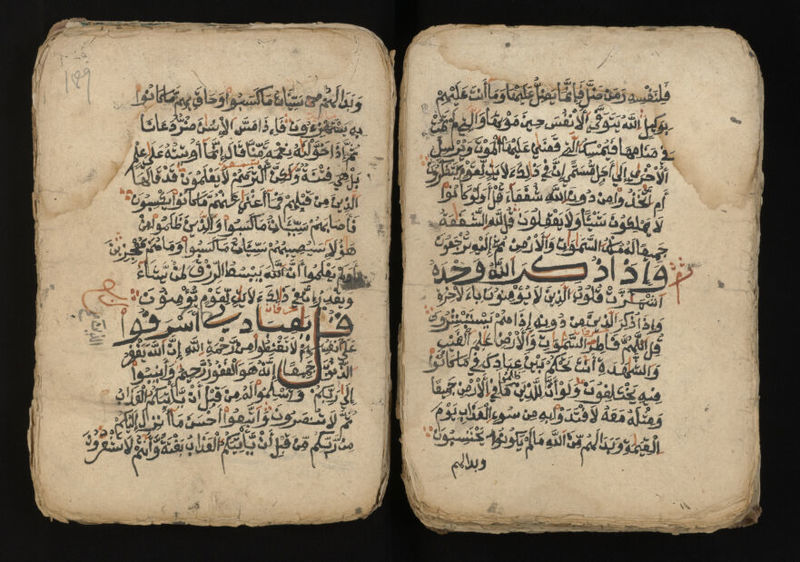 فلنفسه ومن ضل فإنما يضل عليها وما أنت عليهم
بوكيل الله يتوفى الأنفس حين موتها والتي لم تمت
في منامها فيمسك التي قضى عليها الموت ويرسل
الأخرى إلى أجل مسمى إن في ذلك لأيت لقوم يتفكرون
أم اتخذوا من دون الله شفعاء قل أولو كانوا
لا يملكون شيئا ولا يعقلون قل لله الشفعة
جميعا له ملك السموت والأرض ثم إليه ترجعون
وإذا ذكر الله وحده
اشمأزت قلوب الذين لا يؤمنون بالأخرة
وإذا ذكر الذين من دونه إذا هم يستبشرون
قل اللهم فاطر السموت والأرض علم الغيب
والشهدة أنت تحكم بين عبادك في ما كانوا
فيه يختلفون ولو أن للذين ظلموا ما في الأرض جميعا
ومثله معه لافتدوا به من سوء العذاب يوم
القيمة وبدا لهم من الله ما لم يكونوا يحتسبون
وبدا لهم
وبدا لهم سيئات ما كسبوا وحاق بهم ما كانوا
به يستهزءون فإذا مس الإنسن ضر دعانا
ثم إذا خولنه نعمة منا قال إنما أوتيته على علم
بل هي فتنة ولكن أكثرهم لا يعلمون قد قالها
الذين من قبلهم فما أغنى عنهم ما كانوا يكسبون
فأصابهم سيئات ما كسبوا والذين ظلموا من
هؤلاء سيصيبهم سيئات ما كسبوا وما هم بمعجزين
أولم يعلموا أن الله يبسط الرزق لمن يشاء
ويقدر إن في ذلك لأيت لقوم يؤمنون
قل يعبادي الذين أسرفوا
على أنفسهم لا تقنطوا من رحمة الله إن الله يغفر
الذنوب جميعا إنه هو الغفور الرحيم وأنيبوا
إلى ربكم وأسلموا له من قبل أن يأتيكم العذاب
ثم لا تنصرون واتبعوا أحسن ما أنزل إليكم
من ربكم من قبل أن يأتيكم العذاب بغتة وأنتم لا تشعرون